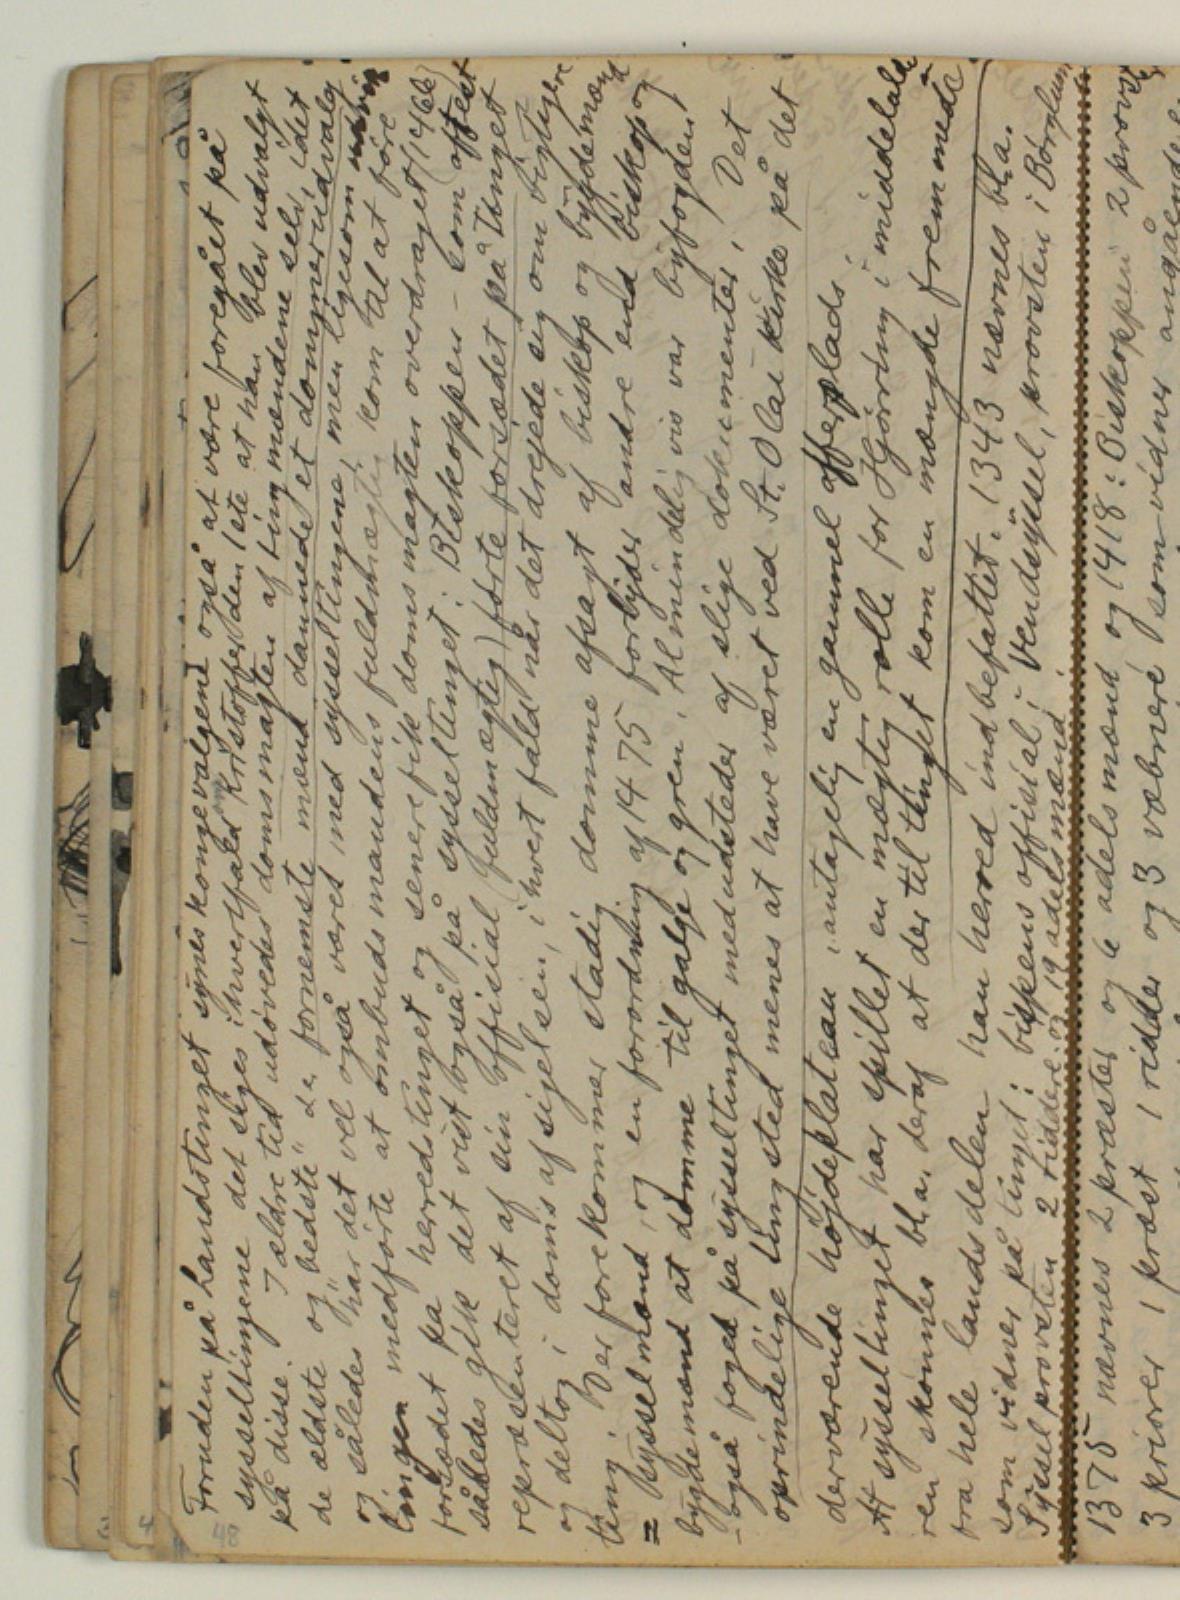 Foruden på landstinget synes kongevalgene også at være foregået på
sysseltingene det siges ihvertfald om Kristoffer den 1ste at han blev udvalgt
på disse. I ældre tid udøvedes domsmagten af tingmændene selv idet
de ældste og "bedste" d.e. fornemste mænd dannede et dommerudvalg
og således har det vel også været med sysseltingene, men ligesom
lingen medførte at ombudsmandens fuldmægtig kom til at føre
forsædet på herredstinget og senere fik domsmagten overdraget (1466)
således gik det vist også på sysseltinget: Biskoppen - som oftest
repræsenteret af sin official (fuldmægtig) førte forsædet på tinget
og deltog i doms afsigelsen, i hvert fald når det drejede sig om vigtigere
ting. Der forekommer stadig domme afsagt af biskop og bygdemænd
= sysselmænd, og en forordning af 1475 forbyder andre end biskop og
bygdemænd at dømme til galge og gren. Almindelig vis var byfogden
- også foged på sysseltinget medudsteder af slige dokumenter. Det
oprindelige tingsted menes at have været ved St. Olai kirke på det
derværende højdeplateau, antagelig en gammel offerplads.
At sysseltinget har spillet en mægtig rolle for Hjørring i middelalde
ren skønnes bl.a. deraf at der til tinget kom en mængde fremmede
fra hele landsdelen han herred indbefattet. 1343 nævnes bl.a.
som vidner på tinget: bispens official i Vendsyssel, provsten i Børglum
Sysselprovsten 2 riddere og 19 adelsmænd.
1375 nævnes 2 præster og 6 adelsmænd og 1418: Biskoppen 2 provster
3 priorer 1 præst 1 ridder og 3 væbnere som vidner angående
48